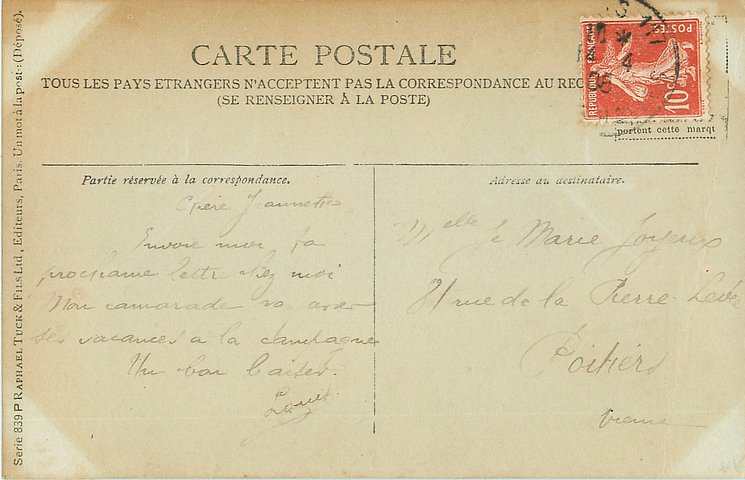 CARTE POSTALE
TOUS LES PAYS ETRANGERS N'ACCEPTENT PAS LA CORRESPONDANCE AU REC
(SE RENSEIGNER À LA POSTE)
REPUBLIQUE FRANÇAISE
POSTES
10c
portent cette marqu
Partie réservée à la correspondance.
Chère Jeannette
Envoie moi ta
prochaine lettre chez moi
Mon camarade va
ses vacances a la campagne
Un bon baiser.
Louis
Adresse du destinataire.
Melle Marie Joyeux
rue de la Pierre-Levée
Poitiers
Vienne
Serie 839 P RAPHAEL TUCK & FILS Ltd., Editeurs, Paris. Un mot à la poste: (Déposé).